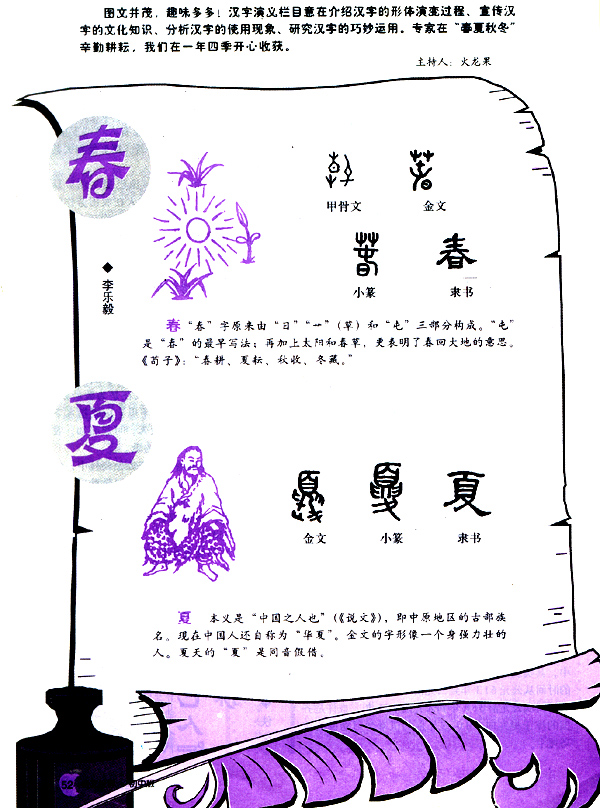 图文并茂，趣味多多！汉字演义栏目意在介绍汉字的形体演变过程、宣传汉
字的文化知识、分析汉字的使用现象、研究汉字的巧妙运用。专家在“春夏秋冬”
辛勤耕耘，我们在一年四季开心收获。
主持人：火龙果
春
◆李乐毅
甲骨文
金文
小篆
隶书
春 “春”字原来由“日”“艹”（草）和“屯”三部分构成。“屯”
是“春”的最早写法；再加上太阳和春草，更表明了春回大地的意思。
《荀子》：“春耕、夏耘、秋收、冬藏。”
夏
金文
小篆
隶书
夏 本义是“中国之人也”（《说文》），即中原地区的古部族
名。现在中国人还自称为“华夏”。金文的字形像一个身强力壮的
人。夏天的“夏”是同音假借。
52